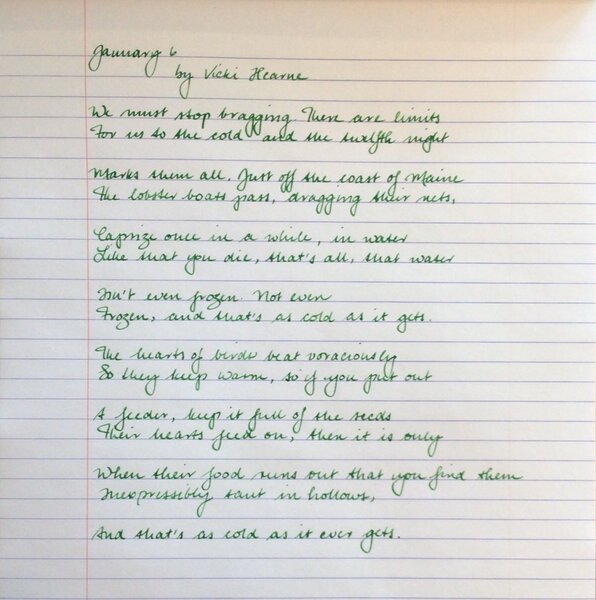 January 6
by Vicki Hearne
We must stop bragging. There are limits
For us to the cold and the twelfth night
Marks them all. Just off the coast of Maine
The lobster boats pass, dragging their nets,
Caprize once in a while, in water
Like that you die, that's all, that water
Isn't even frozen. Not even
Frozen, and that's as cold as it gets.
The hearts of birds beat voraciously
So they keep warm, so if you put out
A feeder, keep it full of the seeds
Their hearts feed on, then it is only
When their food runs out that you find them
Inexpressibly taut in hollows,
And that's as cold as it ever gets.